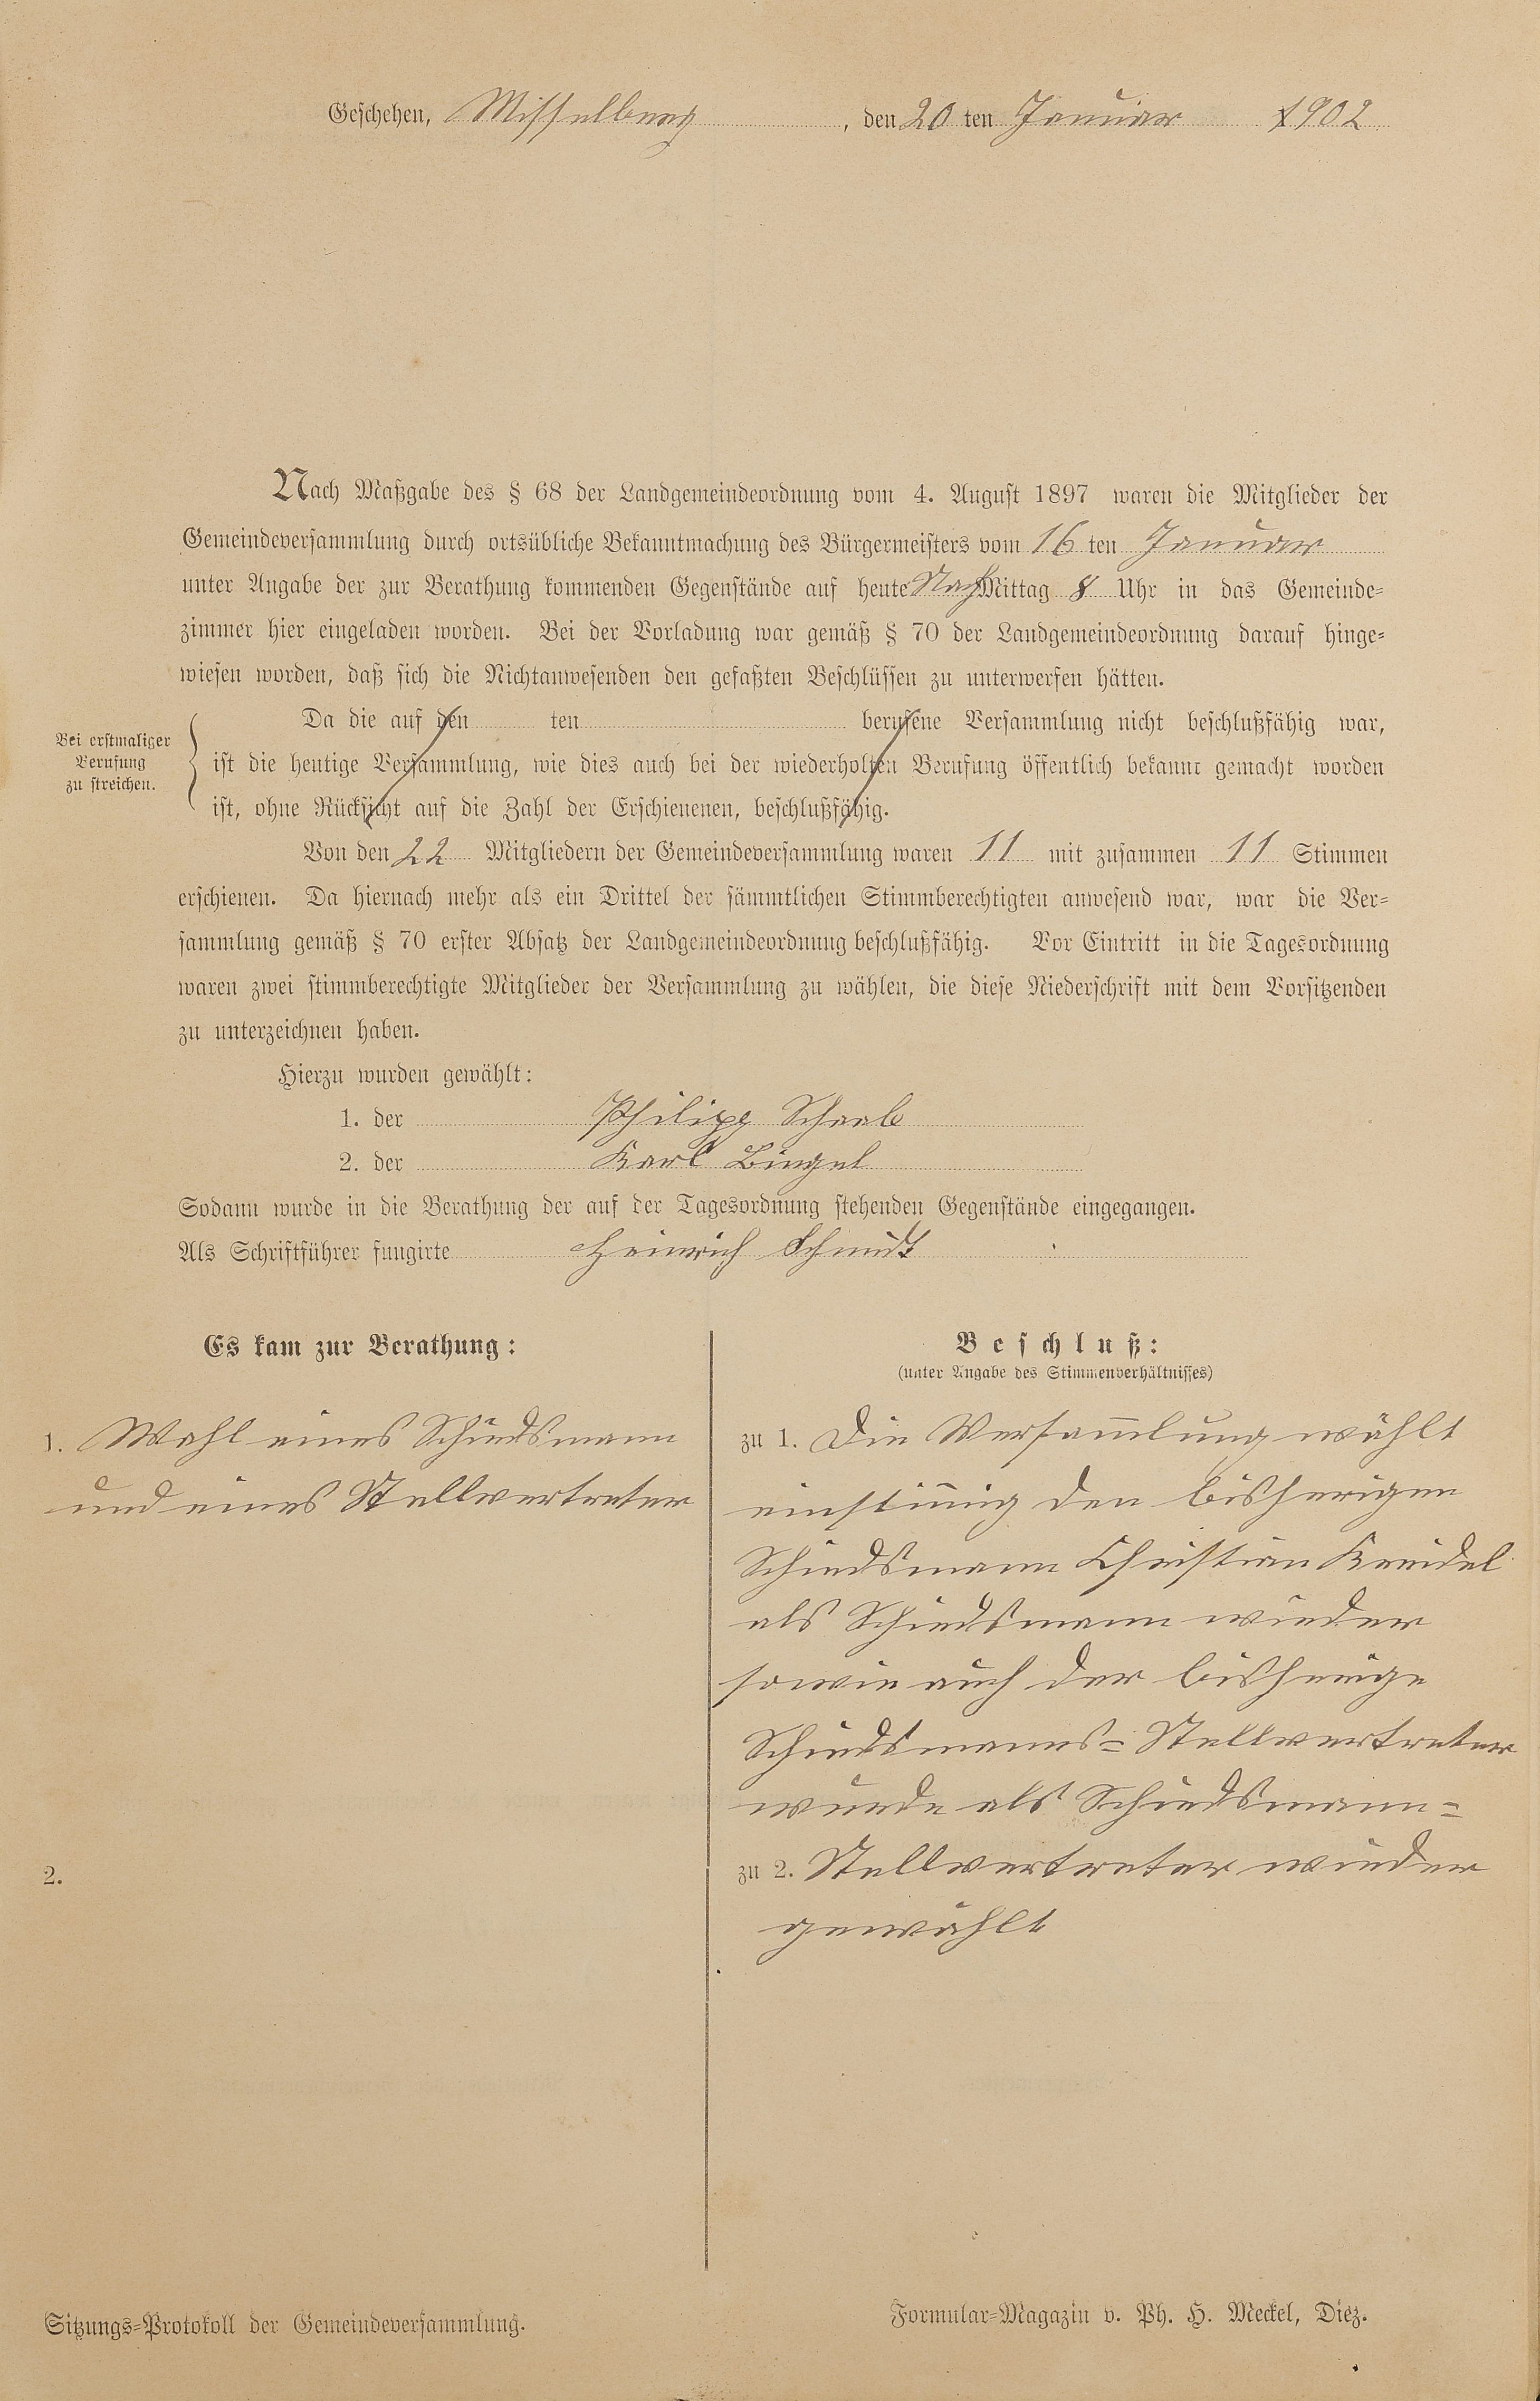 Geschehen, Misselberg, den 20 ten Januar 1902
Nach Maßgabe des § 68 der Landgemeindeordnung vom 4. August 1897 waren die Mitglieder der
Gemeindeversammlung durch ortsübliche Bekanntmachung des Bürgermeisters vom 16 ten Januar
unter Angabe der zur Berathung kommenden Gegenstände auf heute NachMittag 8 Uhr in das Gemeinde=
zimmer hier eingeladen worden. Bei der Vorladung war gemäß § 70 der Landgemeindeordnung darauf hinge=
wiesen worden, daß sich die Nichtanwesenden den gefaßten Beschlüssen zu unterwerfen hätten.
Bei erstmaliger
Berufung
zu streichen.
Da die auf den ten berufene Versammlung nicht beschlußfähig war,
ist die heutige Versammlung, wie dies auch bei der wiederholten Berufung öffentlich bekannt gemacht worden
ist, ohne Rücksicht auf die Zahl der Erschienenen, beschlußfähig.
Von den 22 Mitgliedern der Gemeindeversammlung waren 11 mit zusammen 11 Stimmen
erschienen. Da hiernach mehr als ein Drittel der sämmtlichen Stimmberechtigten anwesend war, war die Ver=
sammlung gemäß § 70 erster Absatz der Landgemeindeordnung beschlußfähig. Vor Eintritt in die Tagesordnung
waren zwei stimmberechtigte Mitglieder der Versammlung zu wählen, die diese Niederschrift mit dem Vorsitzenden
zu unterzeichnen haben.
Hierzu wurden gewählt:
1. der Philipp Schaab
2. der Karl Bingel
Sodann wurde in die Berathung der auf der Tagesordnung stehenden Gegenstände eingegangen.
Als Schriftführer fungirte Heinrich Schmidt
Es kam zur Berathung:
1. Wahl eines Schiedsmann
und eines Stellvertreter
2.
Beschluß:
(unter Angabe des Stimmenverhältnisses)
zu 1. Die Versam̄lung wählt
einstim̄ig den bisherigen
Schiedsmann Christian Kreidel
als Schiedsmann wieder
sowie auch der bisherige
Schiedsmanns=Stellvertreter
wurde als Schiedsmann=
zu 2. Stellvertreter wieder
gewählt
Sitzungs=Protokoll der Gemeindeversammlung.
Formular=Magazin v. Ph. H. Meckel, Diez.